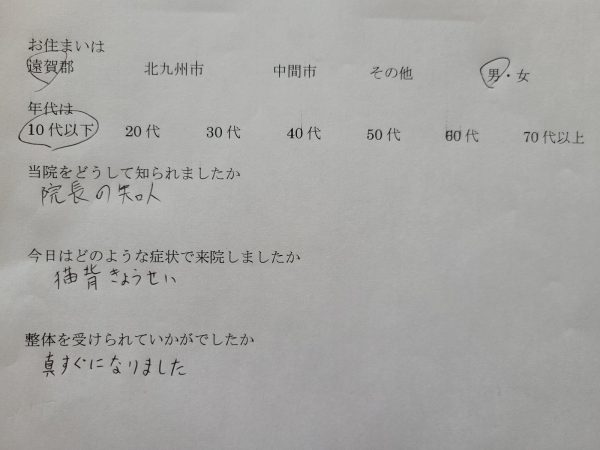 お住まいは
遠賀郡 北九州市 中間市 その他 男・女
年代は
10代以下 20代 30代 40代 50代 60代 70代以上
当院をどうして知られましたか
院長の知人
今日はどのような症状で来院しましたか
猫背きょうせい
整体を受けられていかがでしたか
真すぐになりました